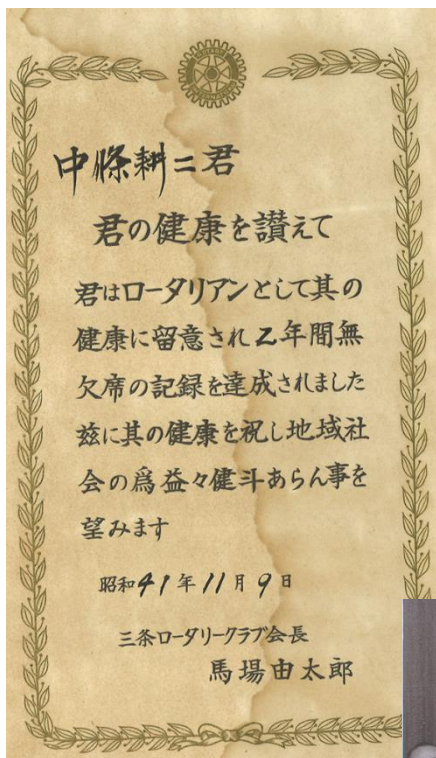 中條耕二君
君の健康を讃えて
君はロータリアンとして其の
健康に留意され2年間無
欠席の記録を達成されました
玆に其の健康を祝し地域社
会の爲益々健斗あらん事を
望みます
昭和41年11月9日
三条ロータリークラブ会長
馬場由太郎